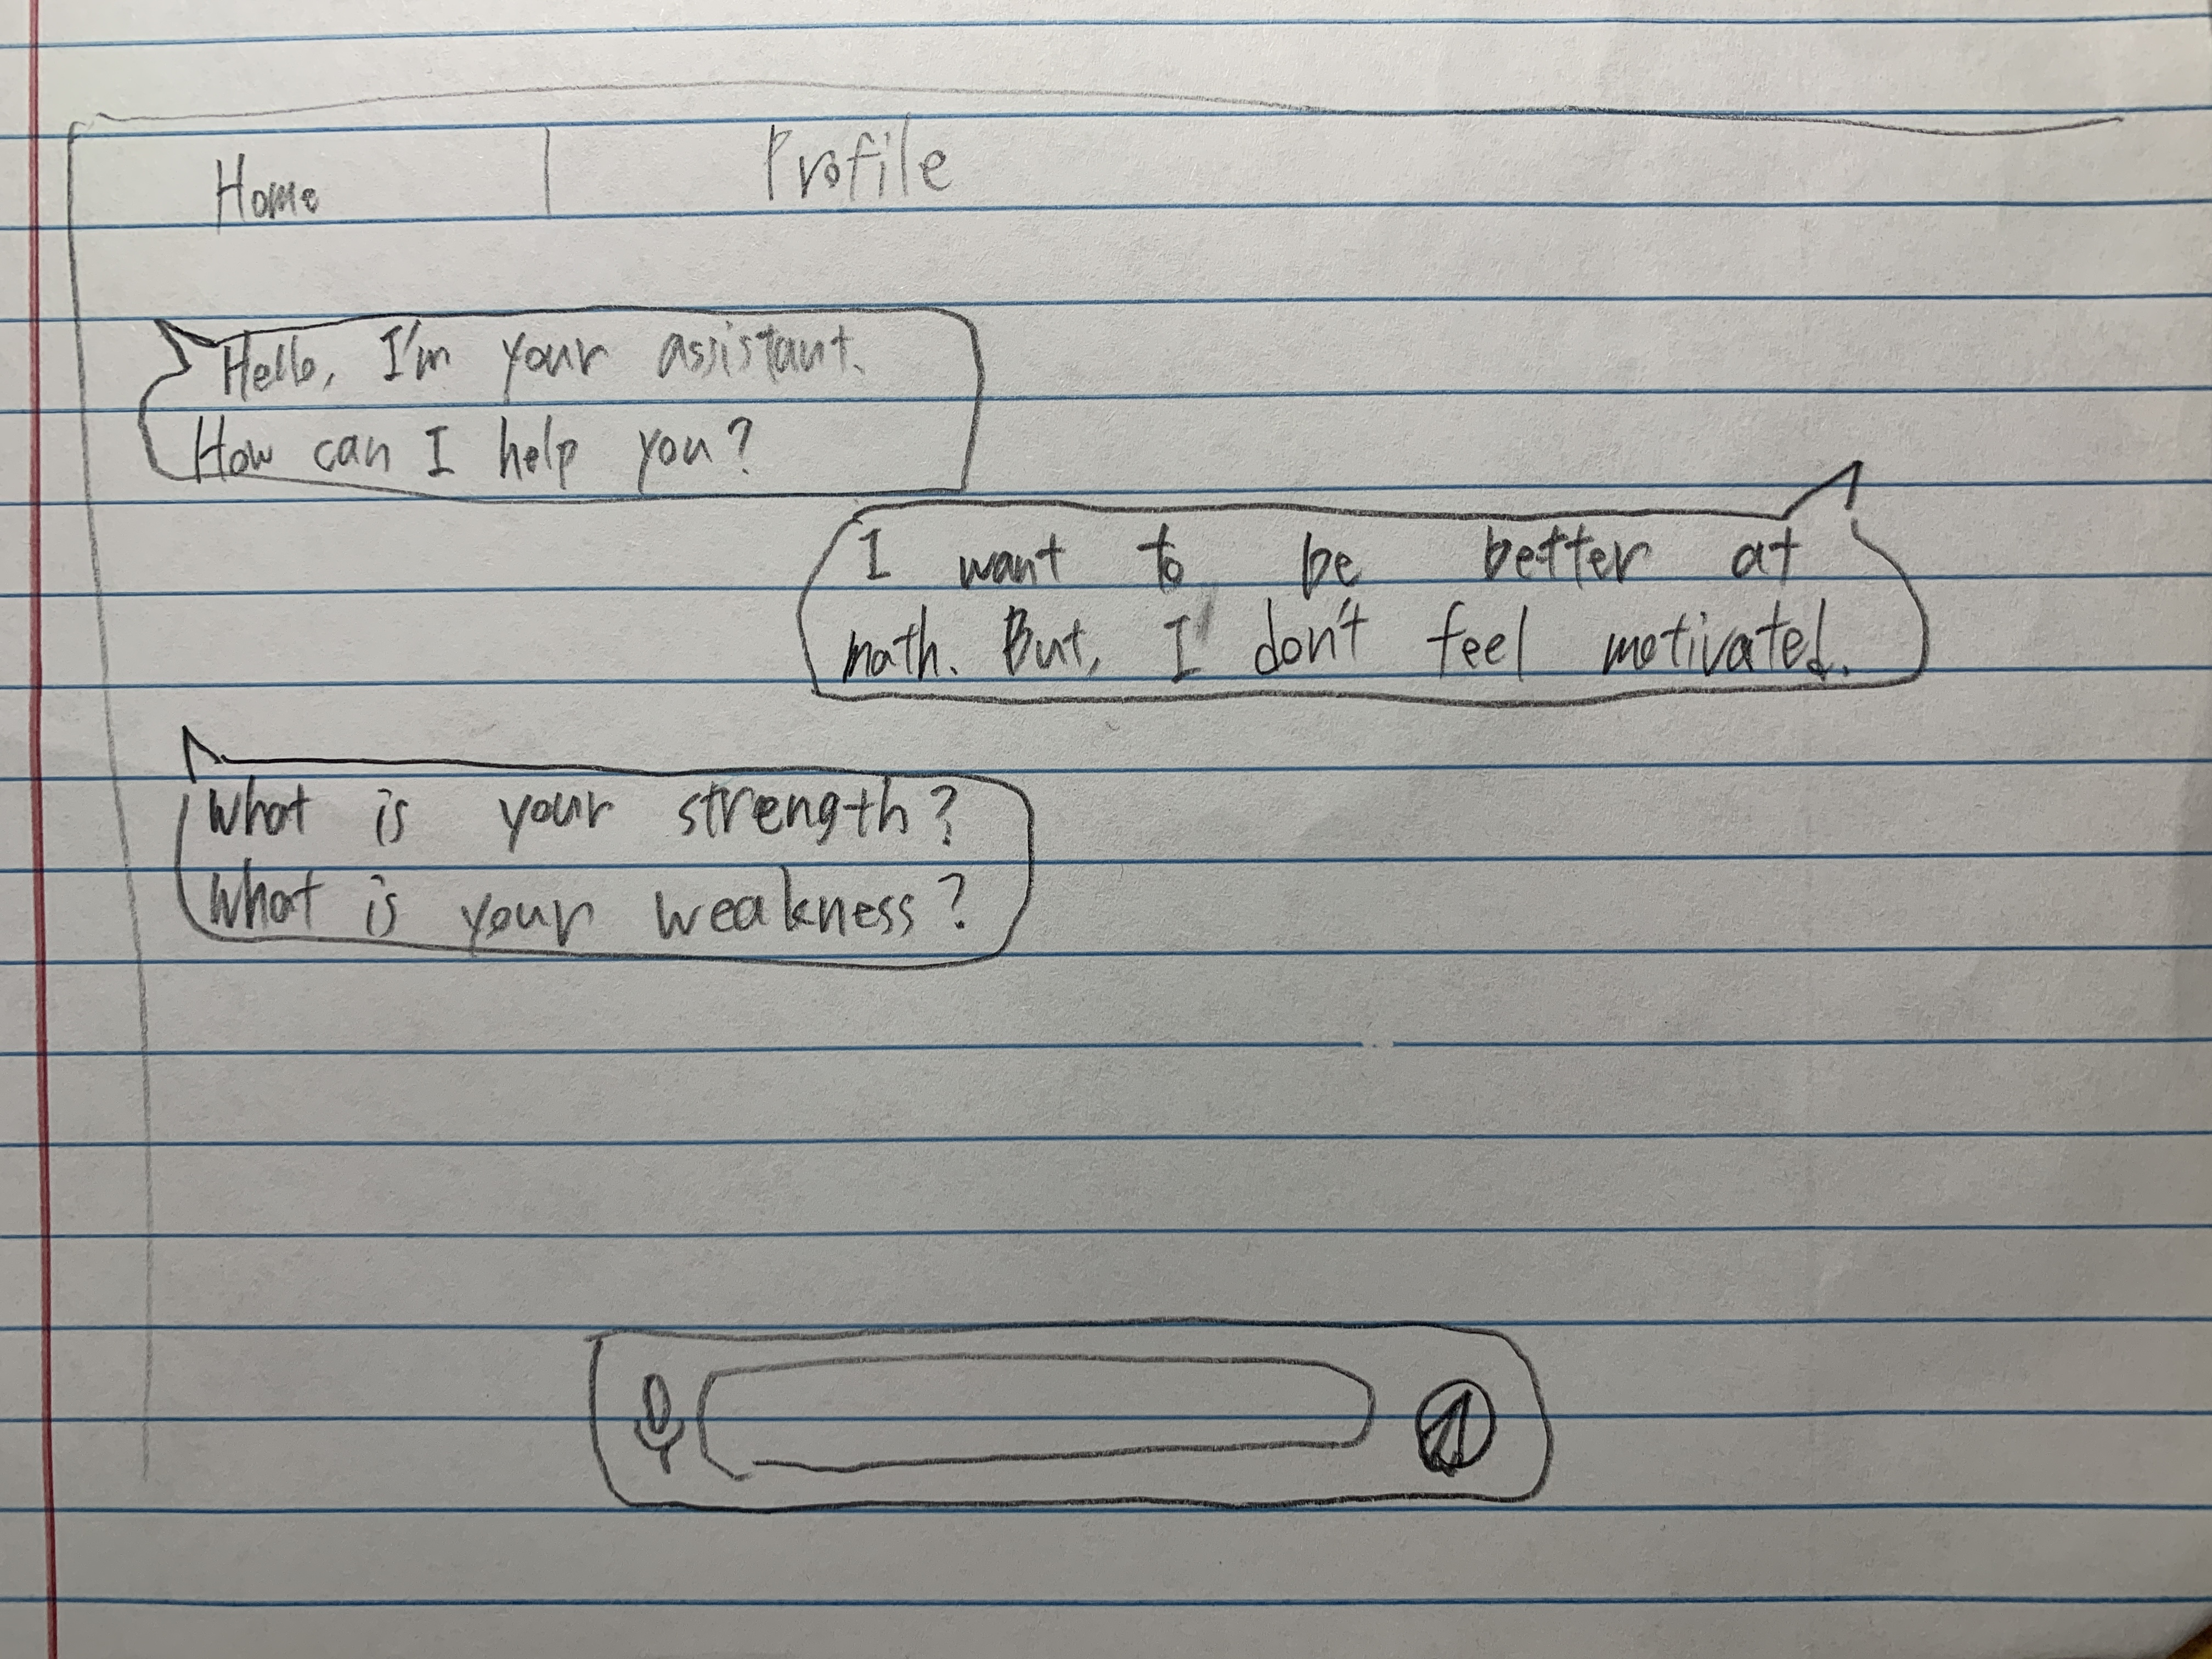 Home | Profile
Hello, I'm your assistant.
How can I help you?
I want to be better at
math. But, I don't feel motivated.
What is your strength?
What is your weakness?